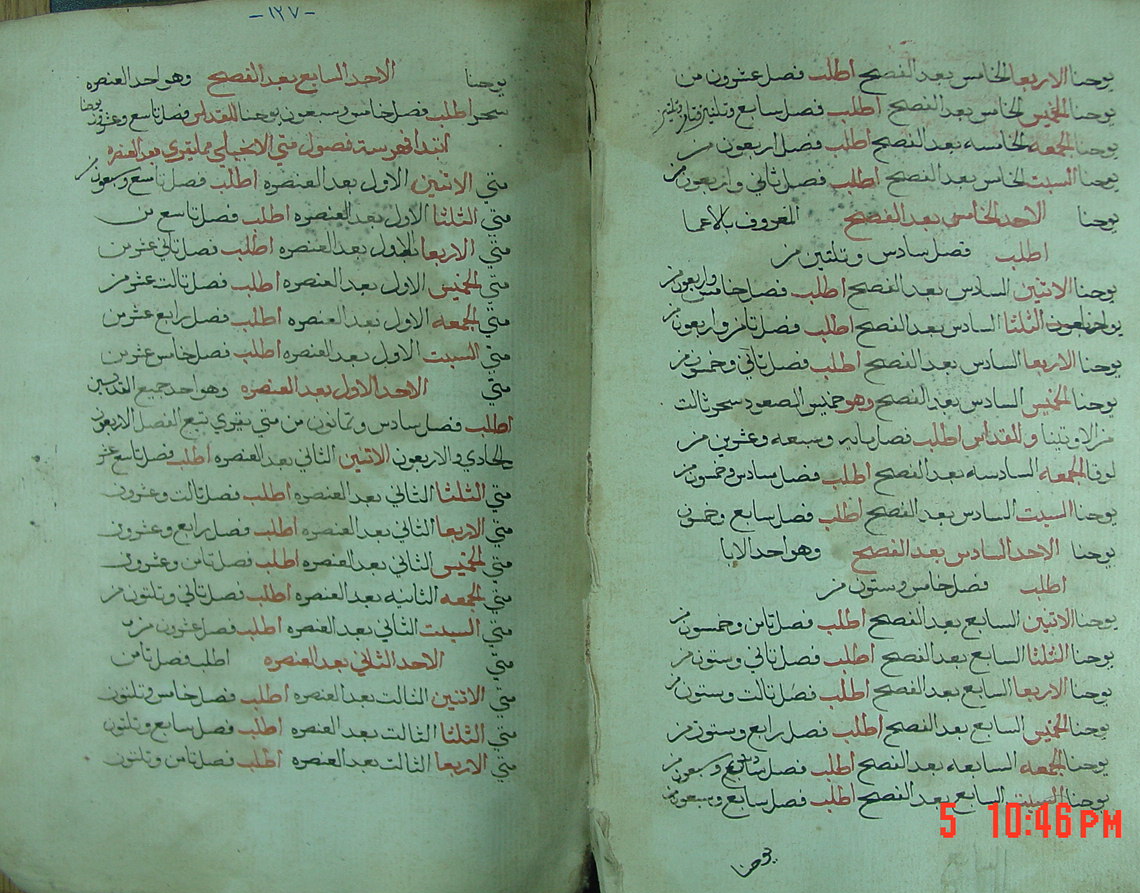 يوحنا الاربعا الخامس بعد الفصح اطلب فصل عشرون من
يوحنا الخميس الخامس بعد الفصح اطلب فصل سابع وثلثين
يوحنا الجمعه الخامسه بعد الفصح اطلب فصل اربعون من
يوحنا السبت الخامس بعد الفصح اطلب فصل ثاني واربعون من
يوحنا الاحد الخامس بعد الفصح المعروف بالاعما
اطلب فصل سادس وتلتين من
يوحنا الاتنين السادس بعد الفصح اطلب فصل خامس واربعون من
يوحنا الثلثا السادس بعد الفصح اطلب فصل تامن واربعون من
يوحنا الاربعا السادس بعد الفصح اطلب فصل تاني وخمسون من
يوحنا الخميس السادس بعد الفصح وهو خميس الصعود سحر ثالت
من الاوتينا وللقداس اطلب فصل مايه وسبعه وعشرين من
لوقا الجمعه السادسه بعد الفصح اطلب فصل سادس وخمسون من
يوحنا السبت السادس بعد الفصح اطلب فصل سابع وخمسون
يوحنا الاحد السادس بعد الفصح وهو احد الابا
اطلب فصل خامس وستون من
يوحنا الاتنين السابع بعد الفصح اطلب فصل تامن وخمسون من
يوحنا الثلثا السابع بعد الفصح اطلب فصل تاني وستون من
يوحنا الاربعا السابع بعد الفصح اطلب فصل تالت وستون من
يوحنا الخميس السابع بعد الفصح اطلب فصل رابع وستون من
يوحنا الجمعه السابعه بعد الفصح اطلب فصل وسبعون من
يوحنا السبت السابع بعد الفصح اطلب فصل سابع وسبعون من
يوحنا
5 10:46 PM
-١٢٧-
يوحنا الاحد السابع بعد الفصح وهو احد العنصره
سحر اطلب فصل خامس وسبعون يوحنا للقداس فصل تاسع وعشرون يوحنا
ابتدا فهرسة فصول متي الانجيلي مما يقري بعد العنصره
متي الاتنين الاول بعد العنصره اطلب فصل تاسع وسبعون من
متي الثلثا الاول بعد العنصره اطلب فصل تاسع من
متي الاربعا الاول بعد العنصره اطلب فصل تاني عشر من
متي الخميس الاول بعد العنصره اطلب فصل تالت عشر من
متي الجمعه الاول بعد العنصره اطلب فصل رابع عشر من
متي السبت الاول بعد العنصره اطلب فصل خامس عشر من
متي الاحد الاول بعد العنصره وهو احد جميع القديسين
اطلب فصل سادس وتمانون من متي تقري تبع الفصل الاربعون
والحادي والاربعون الاتنين التاني بعد العنصره اطلب فصل تاسع عشر
متي الثلثا التاني بعد العنصره اطلب فصل تالت وعشرون
متي الاربعا التاني بعد العنصره اطلب فصل رابع وعشرون
متي الخميس التاني بعد العنصره اطلب فصل تامن وعشرون
متي الجمعه التانيه بعد العنصره اطلب فصل تاني وتلتون من
متي السبت التاني بعد العنصره اطلب فصل عشرون من
متي الاحد التاني بعد العنصره اطلب فصل تامن
متي الاتنين التالت بعد العنصره اطلب فصل خامس وتلتون
متي الثلثا التالت بعد العنصره اطلب فصل سابع وتلتون
متي الاربعا التالت بعد العنصره اطلب فصل تامن وتلتون